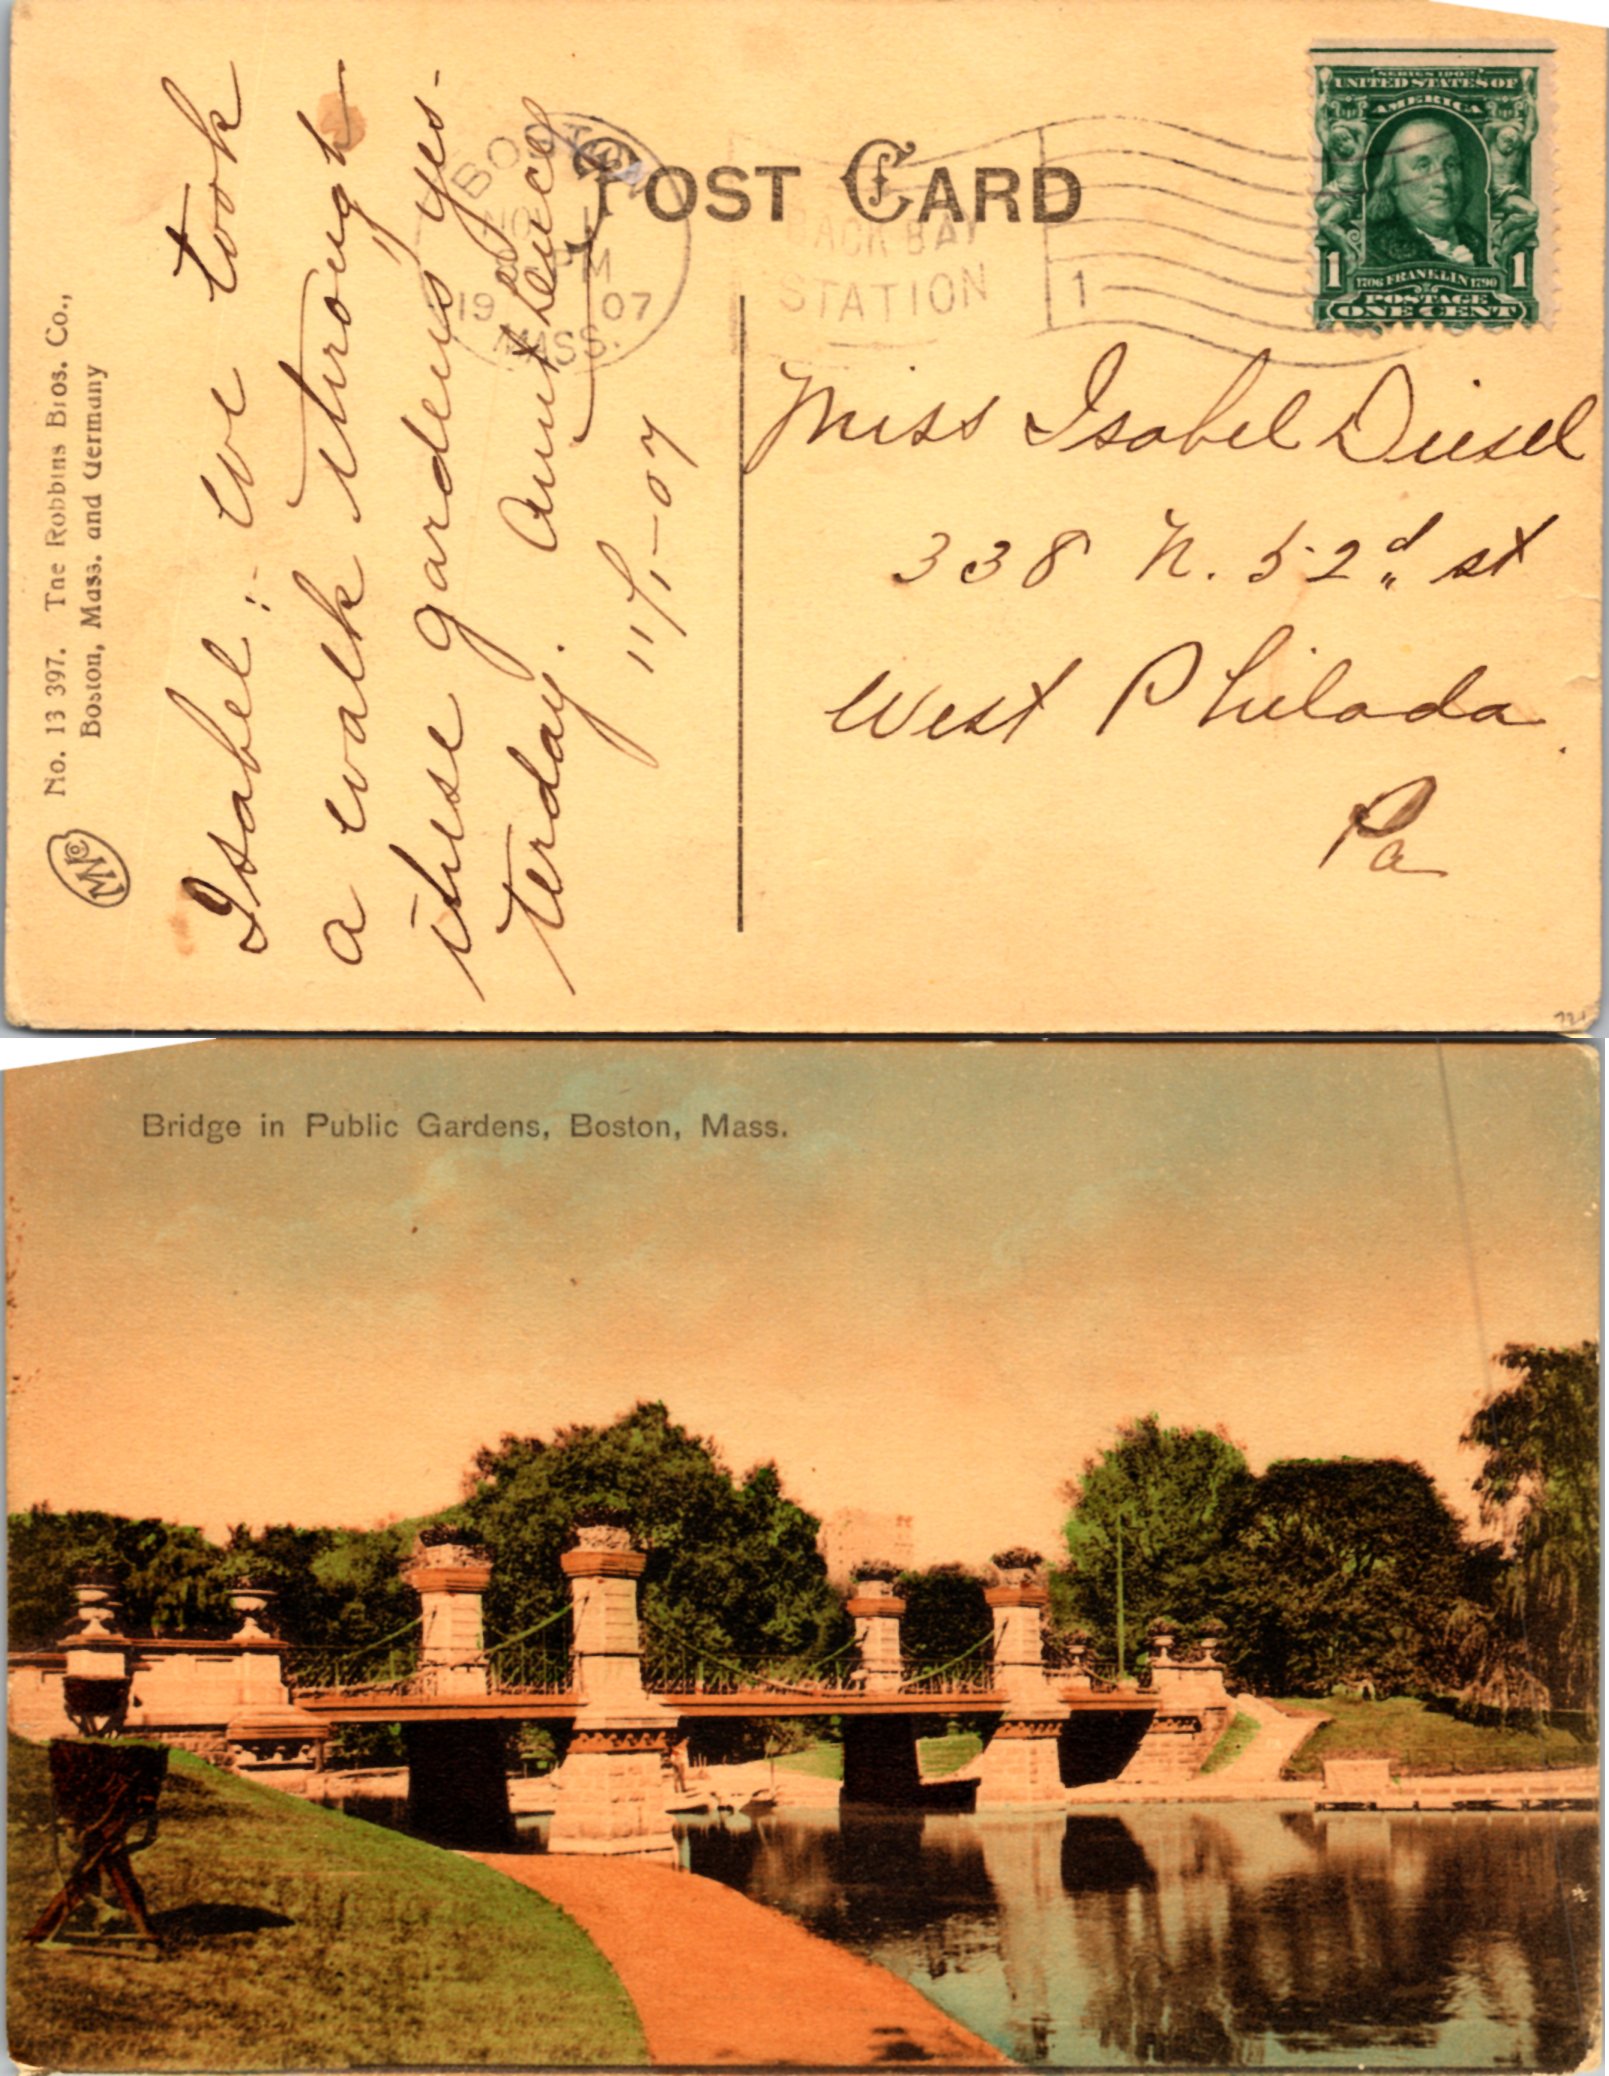 No. 13 397. The Robbins Bros. Co.,
Boston, Mass. and Germany
Isabel :- We took
a walk through
these gardens yes-
terday. Aunt
11/1-07
POST CARD
BOSTON
1 PM
19 07
MASS.
BACK BAY
STATION
1
SERIES 1902
UNITED STATES OF
AMERICA
1 1706 FRANKLIN 1790 1
POSTAGE
ONE CENT
Miss Isabel Diesel
338 N. 52d st
West Philada.
Pa
Bridge in Public Gardens, Boston, Mass.